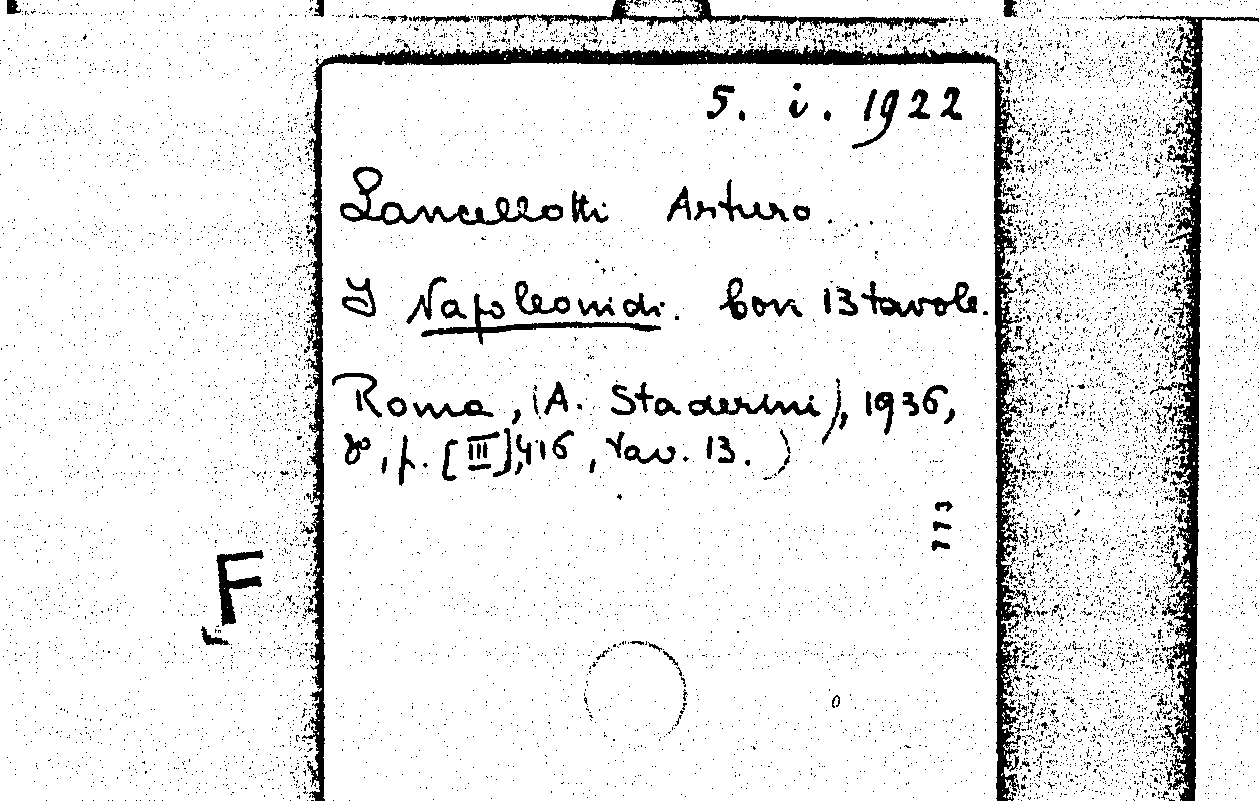 5. i. 1922
Lancellotti Arturo.
I Napoleonidi. Con 13 tavole.
Roma, (A. Staderini), 1936,
8°, p. [III], 416, tav. 13.)
773
F